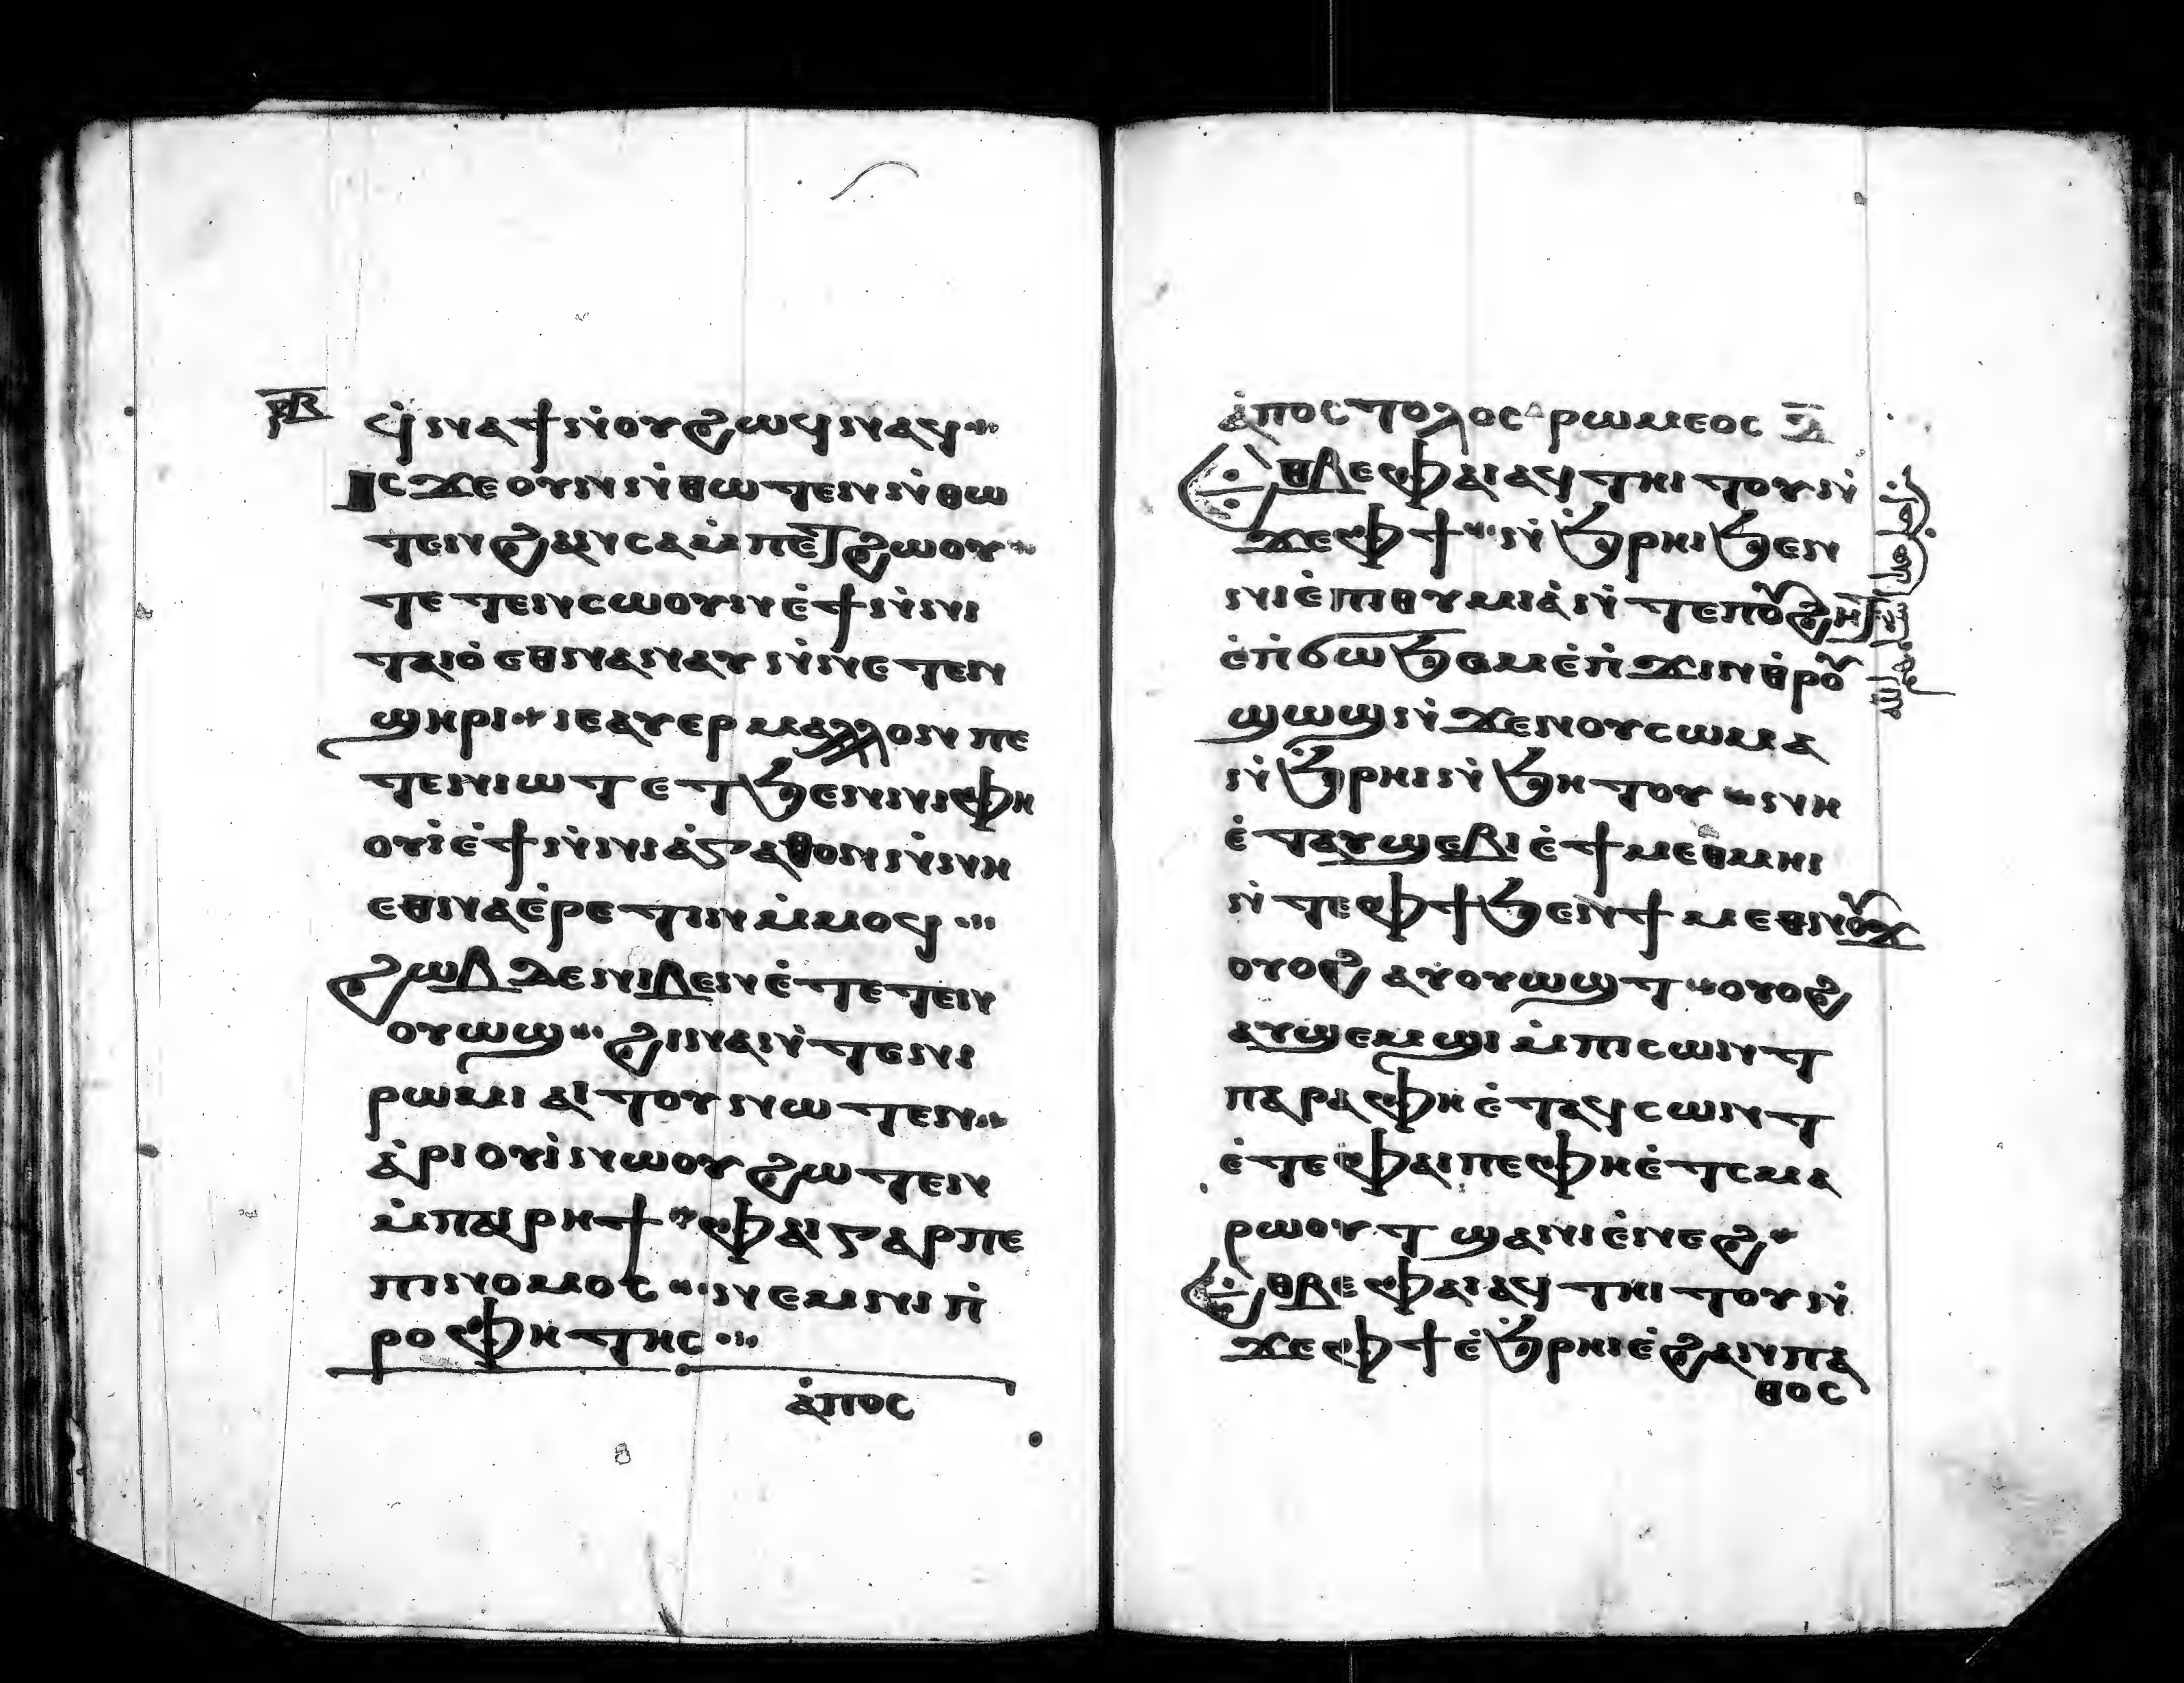 ⲣ̅ⲃ̅
ϥ̇ ⲛⲁϯⲛ̇ⲟⲩϩⲱϥ ⲛⲁϥ
ⲓⲥϫⲉ ⲟⲩⲛ ⲛ̇ⲑⲱⲧⲉⲛ ⲛ̇ⲑⲱ
ⲧⲉⲛ ϩⲁⲛⲥⲁⲙ̇ⲡⲉⲧϩⲱⲟⲩ
ⲧⲉⲧⲉⲛⲥⲱⲟⲩⲛ ⲉ̇ϯ ⲛ̇ⲛⲓ
ⲧⲁⲓⲟ̇ ⲉⲑⲛⲁⲛⲁⲩ ⲛ̇ⲛⲉⲧⲉⲛ
ϣⲏⲣⲓ ⲓⲉ ⲁⲩⲉⲣ ⲙⲁⲗⲗⲟⲛ ⲡⲉ
ⲧⲉⲛⲓⲱⲧ ⲉⲧϧⲉⲛ ⲛⲓⲫⲏ
ⲟⲩⲓ̇ ⲉ̇ϯ ⲛ̇ⲛⲓⲁ̇ⲅⲁⲑⲟⲛ ⲛ̇ⲛⲏ
ⲉⲑⲛⲁⲉ̇ⲣⲉⲧⲓⲛ ⲙ̇ⲙⲟϥ
ϩⲱⲃ ⲇⲉ ⲛⲓⲃⲉⲛ ⲉ̇ⲧⲉⲧⲉⲛ
ⲟⲩⲱϣ ϩⲓⲛⲁ ⲛ̇ⲧⲉ ⲛⲓ
ⲣⲱⲙⲓ ⲁⲓⲧⲟⲩ ⲛⲱⲧⲉⲛ
ⲁ̇ⲣⲓⲟⲩⲓ̇ ⲛⲱⲟⲩ ϩⲱⲧⲉⲛ
ⲙ̇ⲡⲁⲓⲣⲏϯ ⲫⲁⲓ ⲅⲁⲣ ⲡⲉ
ⲡⲓⲛⲟⲙⲟⲥ ⲛⲉⲙ ⲛⲓⲡ̇
ⲣⲟⲫⲏⲧⲏⲥ
ⲁ̇ⲡⲟⲥ
ⲁ̇ⲡⲟⲥⲧⲟⲗⲟⲥ ⲣⲱⲙⲉⲟⲥ ⲁ̅
ⲉⲑⲃⲉ ⲫⲁⲓ ⲁϥⲧⲏⲓⲧⲟⲩ ⲛ̇
ϫⲉ ⲫϯ ⲛ̇ϧ̇ⲣⲏⲓ ϧⲉⲛ
ⲛⲓⲉ̇ⲡⲓⲑⲩⲙⲓⲁ̇ ⲛ̇ⲧⲉ ⲡⲟⲩϩⲏⲧ
ⲉ̇ⲡ̇ϭⲱϧⲉⲙ ⲉ̇ⲡ̇ϫⲓⲛⲑ̇ⲣⲟⲩ
ϣⲱϣ ⲛ̇ϫⲉ ⲛⲟⲩⲥⲱⲙⲁ
ⲛ̇ϧ̇ⲣⲏⲓ ⲛ̇ϧⲏⲧⲟⲩ ⲛⲏ
ⲉ̇ⲧⲁⲩϣⲉⲃⲓⲉ̇ ϯⲙⲉⲑⲙⲏⲓ
ⲛ̇ⲧⲉ ⲫϯ ϧⲉⲛ ϯⲙⲉⲑⲛⲟⲩϫ
ⲟⲩⲟϩ ⲁⲩⲟⲩⲱϣⲧ ⲟⲩⲟϩ
ⲁⲩϣⲉⲙϣⲓ ⲙ̇ⲡⲓⲥⲱⲛⲧ
ⲡⲁⲣⲁ ⲫⲏ ⲉ̇ⲧⲁϥⲥⲱⲛⲧ
ⲉ̇ⲧⲉ ⲫⲁⲓ ⲡⲉ ⲫⲏ ⲉ̇ⲧⲥⲙⲁ
ⲣⲱⲟⲩⲧ ϣⲁ ⲛⲓⲉ̇ⲛⲉϩ
ⲉⲑⲃⲉ ⲫⲁⲓ ⲁϥⲧⲏⲓⲧⲟⲩ ⲛ̇
ϫⲉ ⲫϯ ⲉ̇ϧ̇ⲣⲏⲓ ⲉ̇ϩⲁⲛⲡⲁ
ⲑⲟⲥ